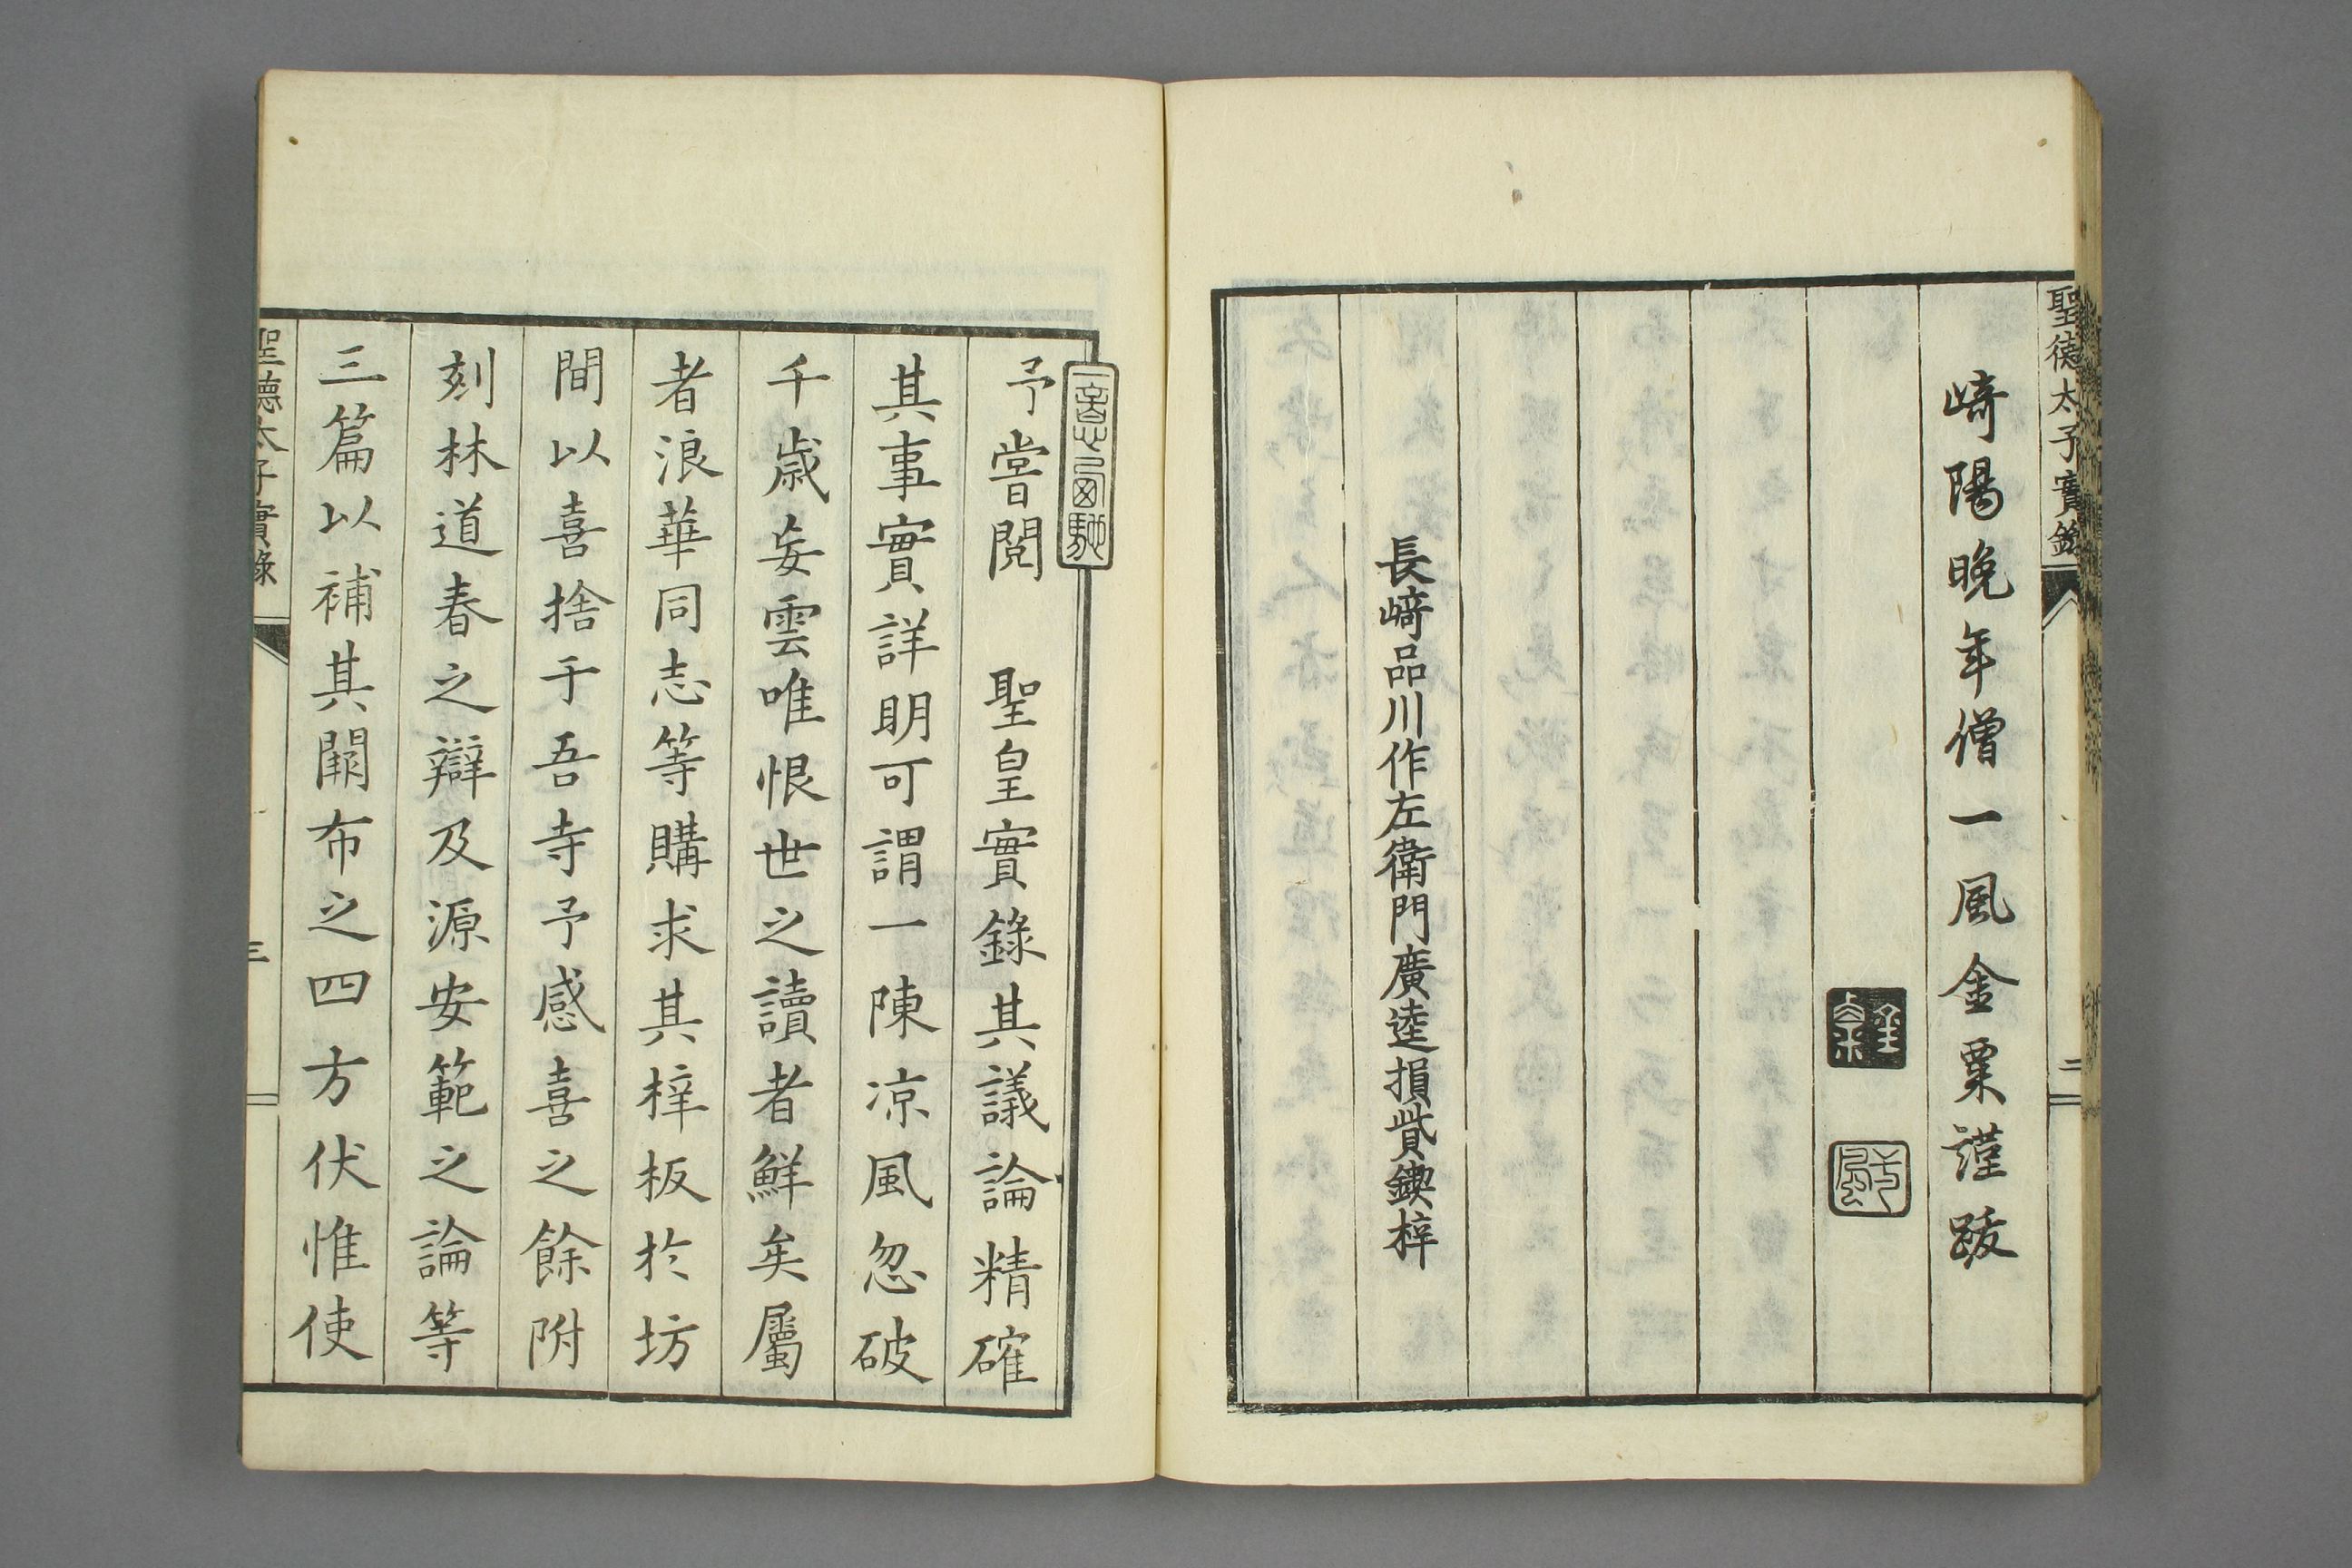 聖德太子實錄
二
崎陽晩年僧一風金粟謹跋
長﨑品川作左衛門廣逵損貲鍥梓
予嘗閱　聖皇實錄其議論精確
其事實詳明可謂一陳凉風忽破
千歲妄雲唯恨世之讀者鮮矣屬
者浪華同志等購求其梓板於坊
間以喜捨于吾寺予感喜之餘附
刻林道春之辯及源安範之論等
三篇以補其闕布之四方伏惟使
聖德太子實錄
三